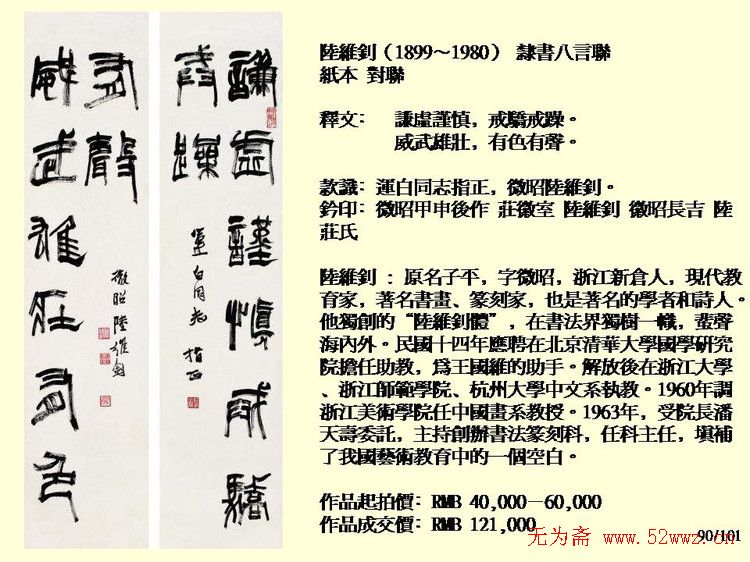 謙虛謹慎戒驕
戒躁
運白同志 指正
威武雄壯有色
有聲
微昭陸維釗
陸維釗（1899～1980） 隸書八言聯
紙本 對聯
釋文: 謙虛謹慎，戒驕戒躁。
威武雄壯，有色有聲。
款識: 運白同志指正，微昭陸維釗。
鈐印: 微昭甲申後作 莊徽室 陸維釗 微昭長吉 陸
莊氏
陸維釗 : 原名子平，字微昭，浙江新倉人，現代教
育家，著名書畫、篆刻家，也是著名的學者和詩人。
他獨創的“陸維釗體”，在書法界獨樹一幟，蜚聲
海內外。民國十四年應聘在北京清華大學國學研究
院擔任助教，爲王國維的助手。解放後在浙江大學
、浙江師範學院、杭州大學中文系執教。1960年調
浙江美術學院任中國畫系教授。1963年，受院長潘
天壽委託，主持創辦書法篆刻科，任科主任，填補
了我國藝術教育中的一個空白。
作品起拍價: RMB 40,000—60,000
作品成交價: RMB 121,000
90/101
无为斋 www.52wwz.cn